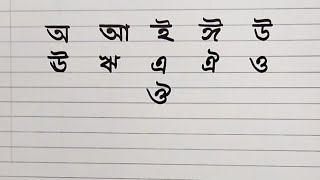 অ আ ই ঈ উ
ঊ ঋ এ ঐ ও
ঔ